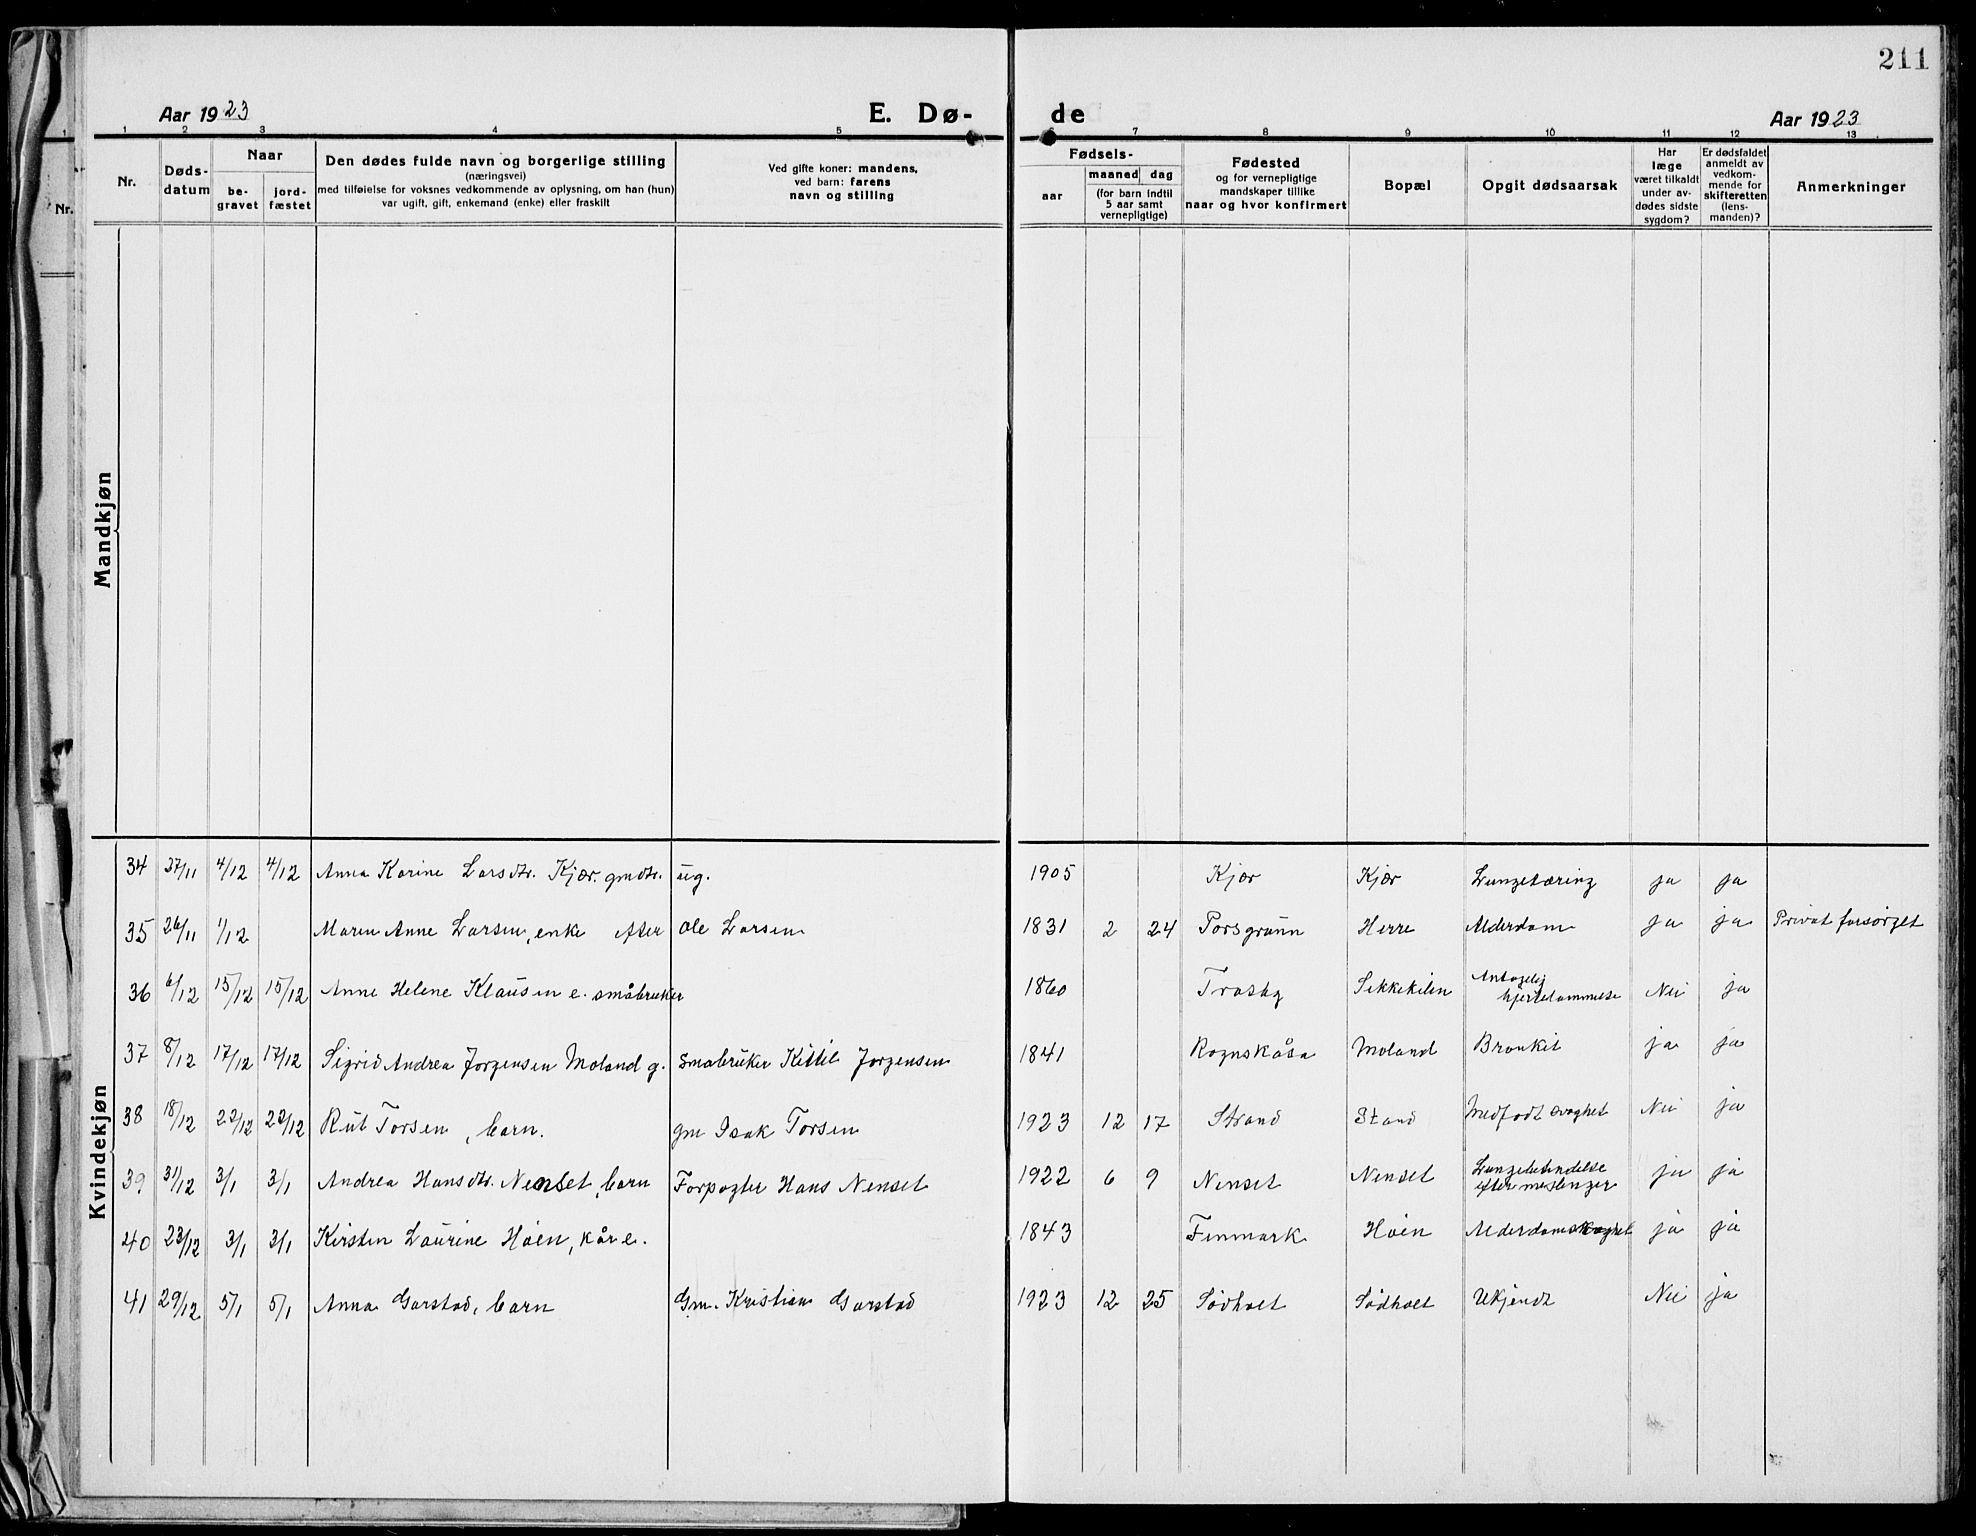 211
Aar 1923 E. Dø- de Aar 1923
1 2 3 4 5 6 7 8 9 10 11 12 13
Nr.
Døds-
datum
Naar
be-
gravet
jord-
fæstet
Den dødes fulde navn og borgerlige stilling
(næringsvei)
med tilføielse for voksnes vedkommende av oplysning, om han (hun)
var ugift, gift, enkemand (enke) eller fraskilt
Ved gifte koner: mandens,
ved barn: farens
navn og stilling
Fødsels-
aar
maaned dag
(for barn indtil
5 aar samt
vernepligtige)
Fødested
og for vernepligtige
mandskaper tillike
naar og hvor konfirmert
Bopæl
Opgit dødsaarsak
Har
læge
været tilkaldt
under av-
dødes sidste
sygdom?
Er dødsfaldet
anmeldt av
vedkom-
mende for
skifteretten
(lens-
manden)?
Anmerkninger
1
Nr.
Mandkjøn
Kvindekjøn
34 4/12 4/12 Anna Karine Larsdtr. Kjær. gmdtr. ug. 1905 Kjær Kjær Lungetæring ja ja
35 26/11 1/12 Maren Anne Larsen, enke efter Ole Larsen 1831 2 24 Porsgrunn Herre Alderdom ja ja Privat forsørget
36 6/12 15/12 15/12 Anne Helene Klausen e. småbruker 1860 Trosby Sikkekilen Antagelig hjertelammelse Nei ja
37 8/12 17/12 17/12 Sigrid Andrea Jorgensen Moland g. småbruker Kittil Jorgensen 1841 Rognskåsa Moland Bronkit ja ja
38 18/12 22/12 22/12 Rut Torsen, barn. gm Isak Torsen 1923 12 17 Strand Stand Medfødt svaghet Nei ja
39 31/12 3/1 3/1 Andrea Hansdtr. Nenset, barn Forpagter Hans Nenset 1922 6 9 Nenset Nenset Lungebetendelse efter meslinger ja ja
40 23/12 3/1 3/1 Kirsten Laurine Høen, kår e. 1843 Finmark Høen Alderdomssvaghet ja ja
41 29/12 5/1 5/1 Anna Garstad, barn Gm. Kristian Garstad 1923 12 25 Sødholt Sødholt Ukjendt Nei ja